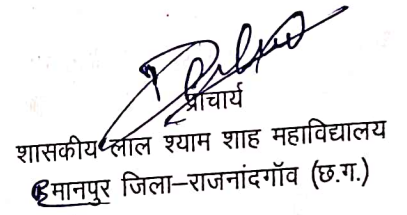 प्राचार्य
शासकीय लाल श्याम शाह महाविद्यालय
मानपुर जिला–राजनांदगॉव (छ.ग.)